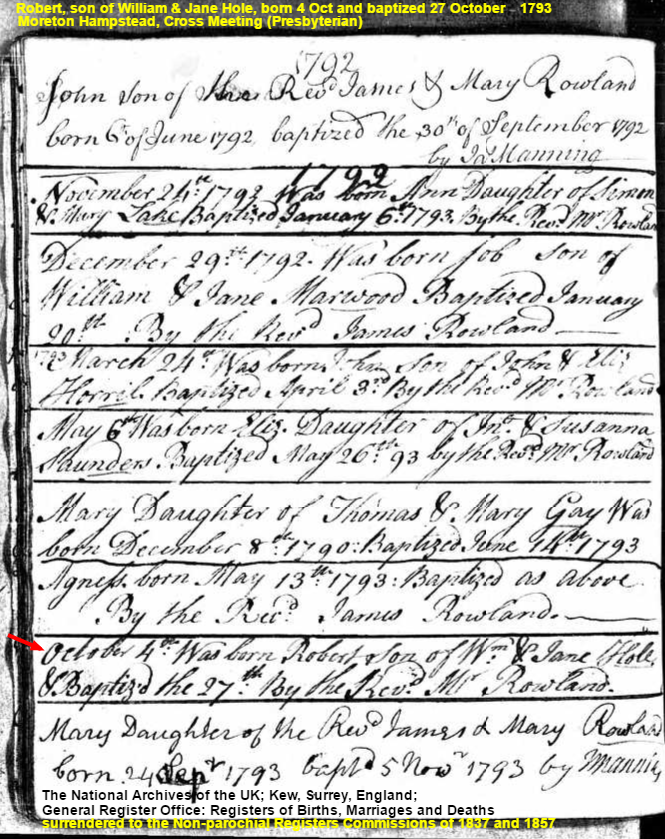 Robert, son of William & Jane Hole, born 4 Oct and baptized 27 October 1793
Moreton Hampstead, Cross Meeting (Presbyterian)
1792
John son of the Revd James & Mary Rowland
born 6th of June 1792, baptized the 30th of September 1792
by Js Manning
1792
November 24th 1792 Was born Ann Daughter of Simon
& Mary Lake Baptized January 6th 1793 By the Revd Mr Rowland
December 29th 1792. Was born Job son of
William & Jane Marwood Baptized January
20th By the Revd James Rowland
1793 March 24th Was born John son of John & Eliz
Horril Baptized April 3rd By the Revd Mr Rowland
May 6th Was born Eliz. Daughter of Jno & Susanna
Saunders Baptized May 26th 93 by the Revd Mr Rowland
Mary Daughter of Thomas & Mary Gay Was
born December 8th 1790: Baptized June 14th 1793
Agness born May 13th 1793: Baptized as above
By the Revd James Rowland.
October 4th Was born Robert son of Wm & Jane Hole,
& Baptizd the 27th By the Revd Mr Rowland.
Mary Daughter of the Revd James & Mary Rowland
born 24 Sepr 1793 baptd 5 Novr 1793 by Manning
The National Archives of the UK; Kew, Surrey, England;
General Register Office: Registers of Births, Marriages and Deaths
surrendered to the Non-parochial Registers Commissions of 1837 and 1857